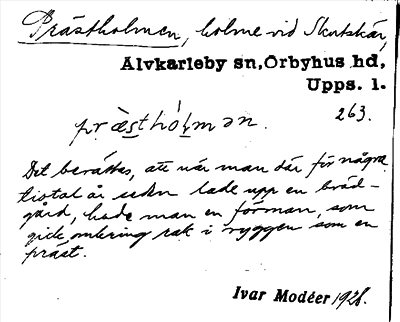 Prästholmen, holme vid Skutskär,
Älvkarleby sn, Örbyhus hd,
Upps. l.
263.
præsthólmən.
Det berättas, att när man där för några
tiotal år sedan lade upp en bräd-
gård, hade man en förman, som
gick omkring rak i ryggen som en
präst.
Ivar Modéer 1928.